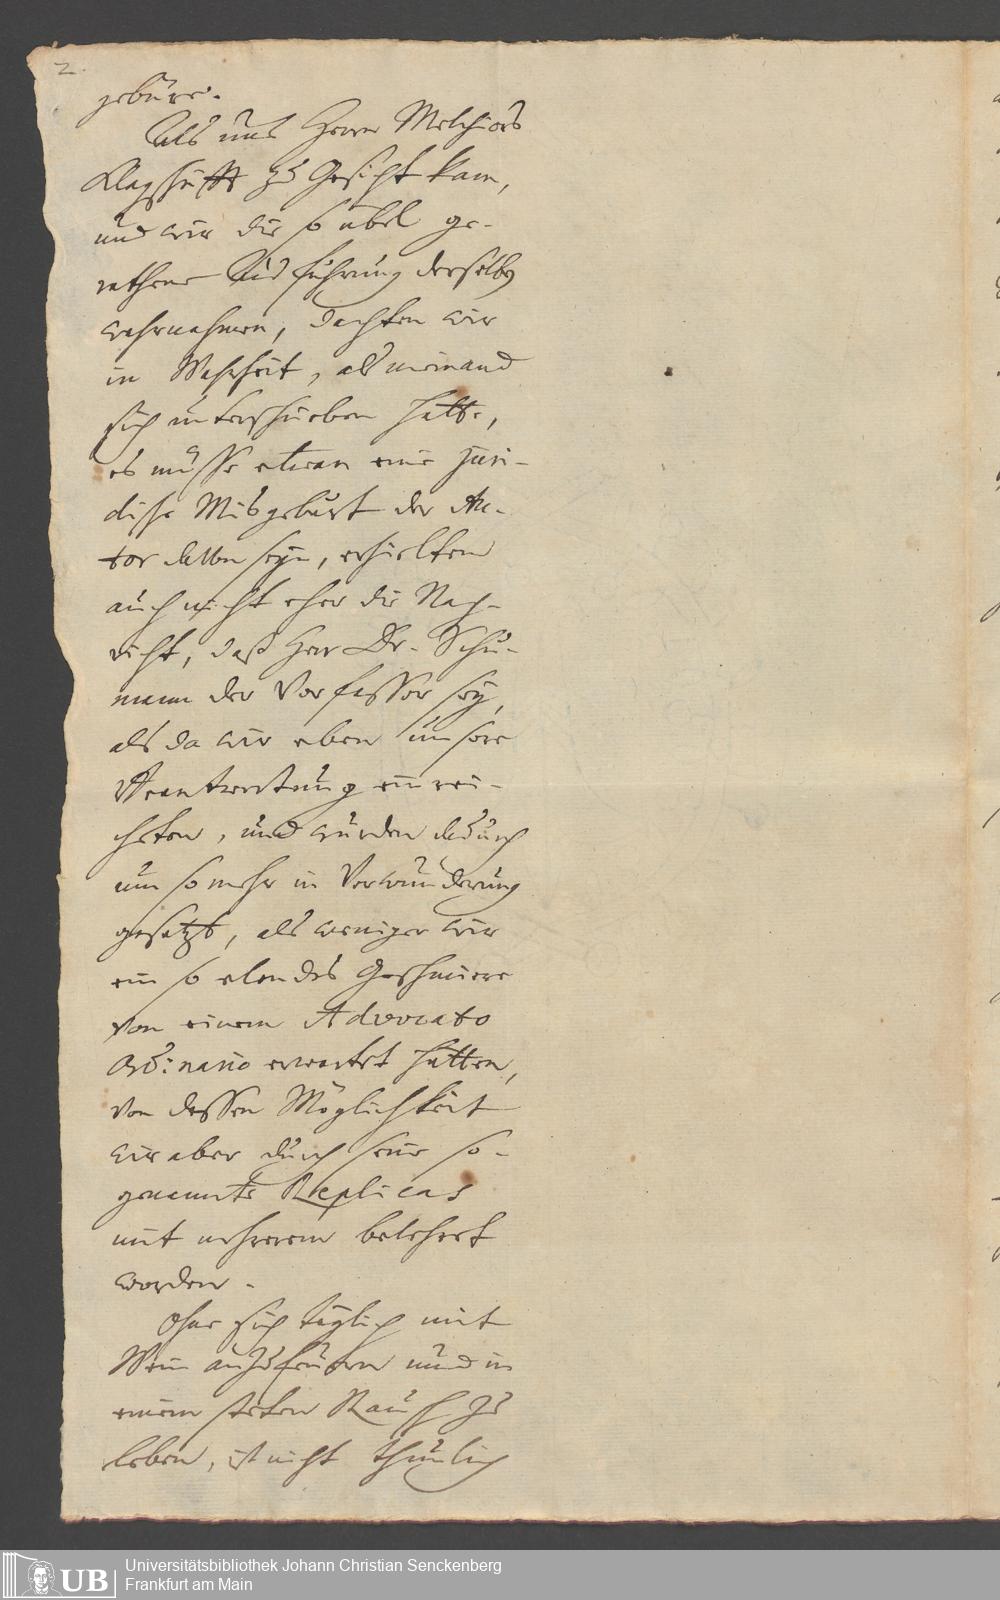 2.
gebüre.
Als uns Herrn Melchiors
Klagschrifft zu Gesicht kam,
und wir die so übel ge-
rathene Ausführung derselben
wahrnahmen, dachten wir
in Wahrheit, als niemand
sich unterschrieben hatte,
es müsse etwan eine juri-
dische Misgeburt der Auc-
tor davon seyn, erhielten
auch nicht eher die Nach-
richt, daß Herr Dr. Schu-
mann der Verfasser sey,
als da wir eben unsere
Verantwortung einrei-
cheten, und wurden dadurch
um so mehr in Verwunderung
gesetzt, als weniger wir
ein so elendes Geschmiere
von einem Advocato
Ordinario erwartet hätten,
von dessen Möglichkeit
wir aber durch seine so-
genannte Replicas
mit mehrerem belehrt
worden.
Ohne sich täglich mit
Wein anzufeuren und in
einem steten Rausch zu
leben, ist nicht thunlich
UB
Universitätsbibliothek Johann Christian Senckenberg
Frankfurt am Main